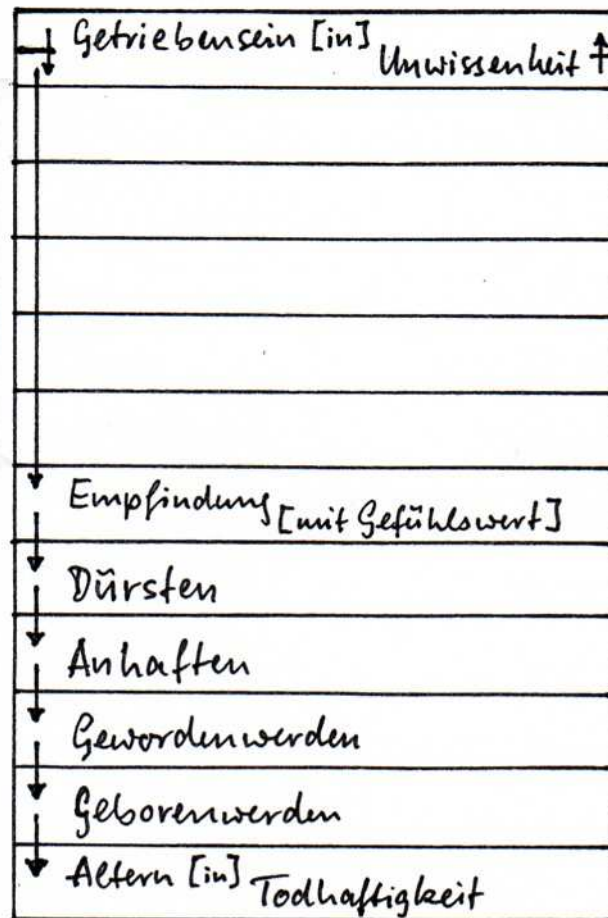 Getriebensein [in] Unwissenheit
Empfindung [mit Gefühlswert]
Dürsten
Anhaften
Gewordenwerden
Geborenwerden
Altern [in] Todhaftigkeit